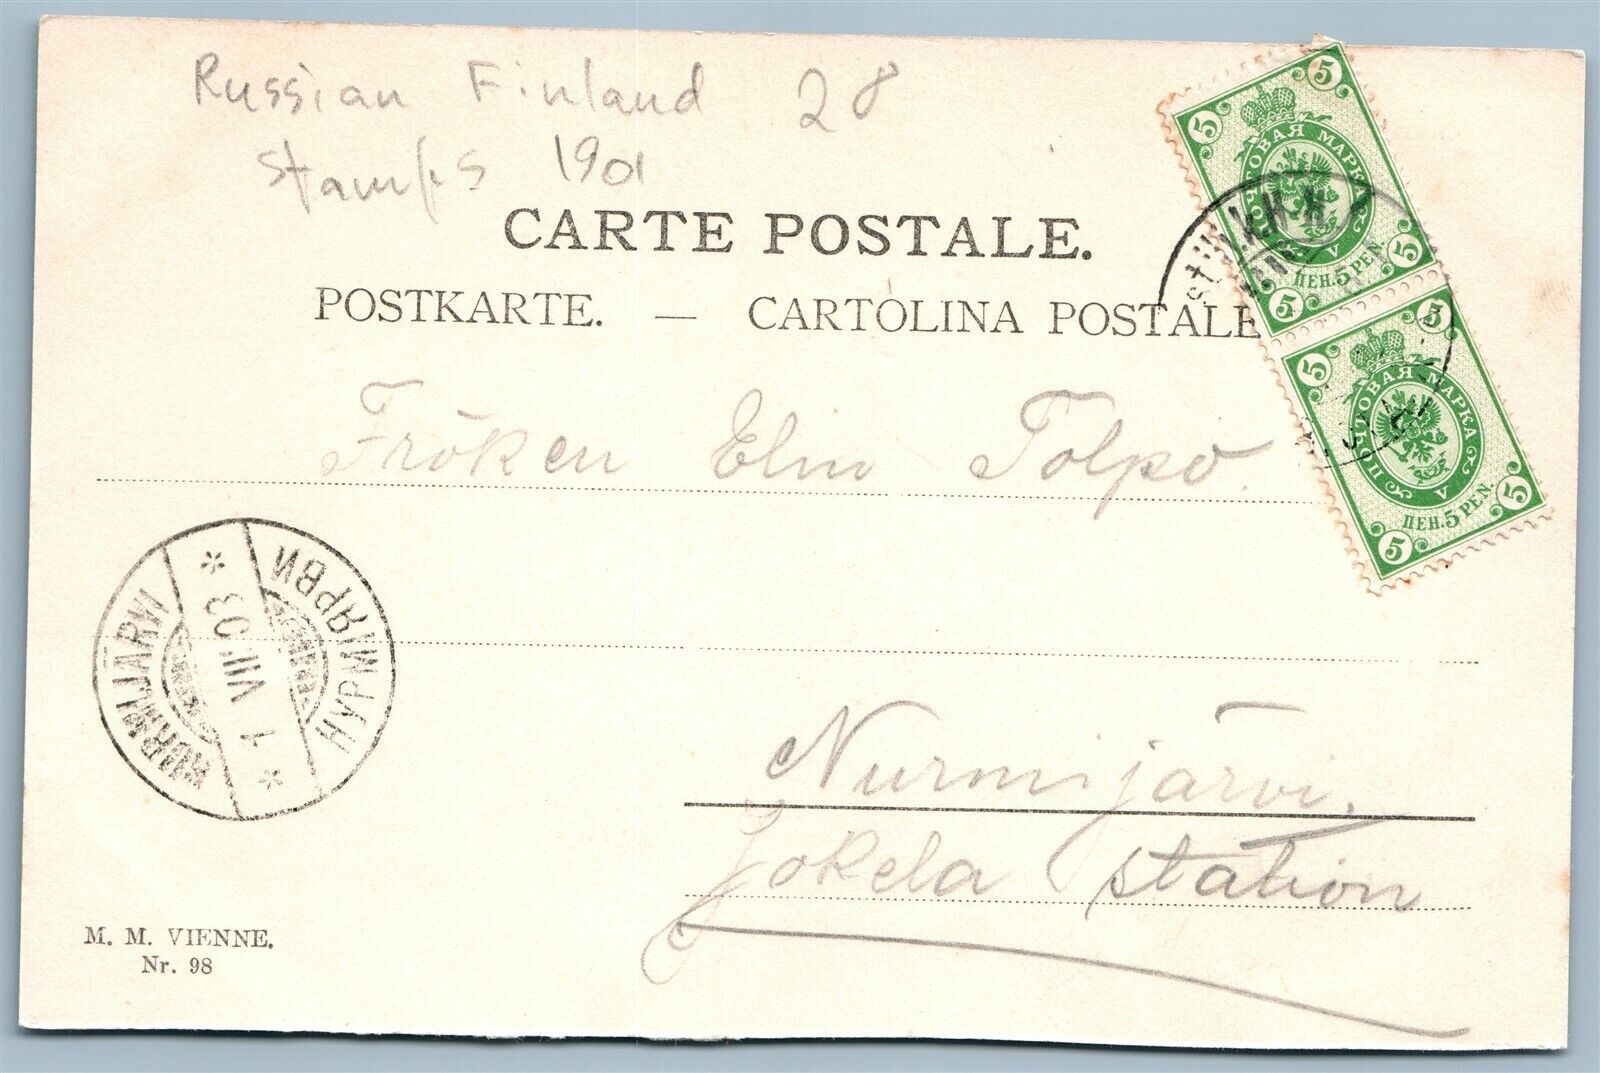 Russian Finland 28
stamps 1901
CARTE POSTALE.
POSTKARTE. — CARTOLINA POSTALE
5 5
ПОЧТОВАЯ МАРКА
V
ПЕН. 5 PEN.
5 5
5 5
ПОЧТОВАЯ МАРКА
V
ПЕН. 5 PEN.
5 5
Fröken Elin Tolpo.
НУРМИЯРВИ
VIII 03
NURMIJÄRVI
Nurmijärvi.
Jokela station
M. M. VIENNE.
Nr. 98